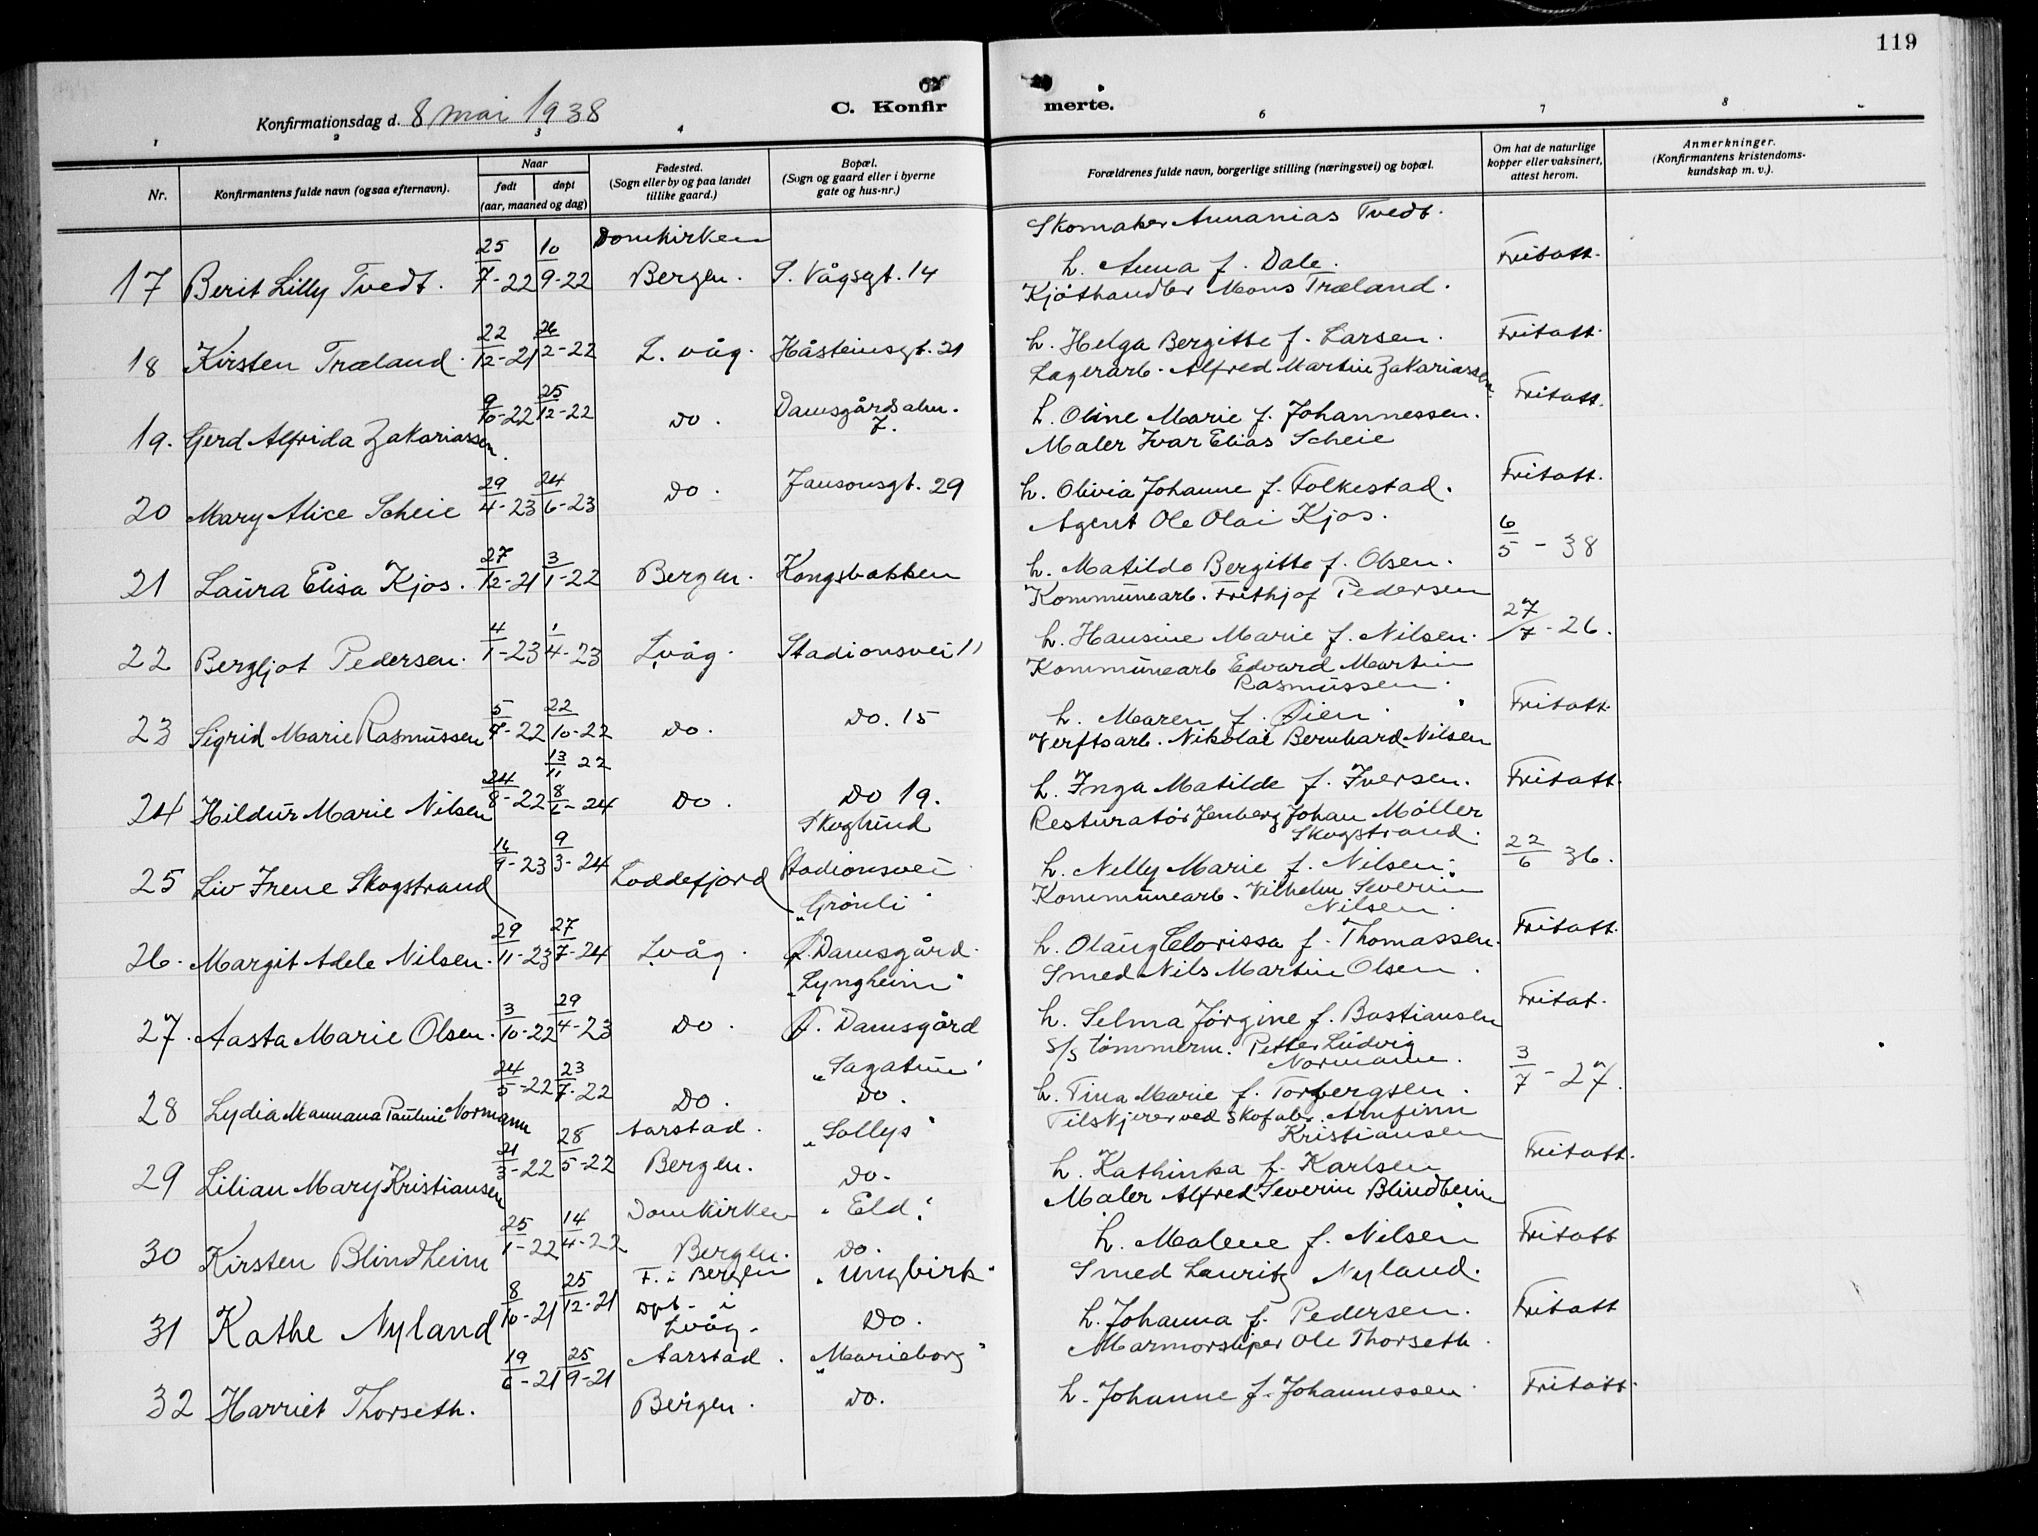 119
Konfirmationsdag d. 8 mai 1938
C. Konfir
merte.
1 2 3 4 6 7 8
Nr.
Konfirmantens fulde navn (ogsaa efternavn).
Naar
født døpt
(aar, maaned og dag)
Fødested.
(Sogn eller by og paa landet
tillike gaard.)
Bopæl.
(Sogn og gaard eller i byerne
gate og hus-nr.)
Forældrenes fulde navn, borgerlige stilling (næringsvei) og bopæl.
Om hat de naturlige
kopper eller vaksinert,
attest herom.
Anmerkninger.
(Konfirmantens kristendoms-
kundskap m. v.).
Domkirken Skomaker Annanias Tvedt.
17 Berit Lilly Tvedt. 25/7-22 10/9-22 Bergen. S. Vågsgt. 14 h. Anna f. Dale. Fritatt.
Kjøthandler Mons Træland.
18 Kirsten Træland. 22/12-21 26/2-22 L. våg. Håsteinsgt. 21 h. Helga Bergitte f. Larsen. Fritatt.
Lagerarb. Alfred Martin Zakariassen
19. Gerd Alfrida Zakariassen. 9/10-22 25/12-22 Do. Damsgårdsalm. 7. h. Oline Marie f. Johannessen. Fritatt.
Maler Ivar Elias Scheie
20 Mary Alice Scheie 29/4-23 24/6-23 Do. Jansonsgt. 29 h. Olivia Johanne f. Folkestad. Fritatt.
Agent Ole Olai Kjos.
21 Laura Elisa Kjos. 27/12-21 3/1-22 Bergen. Kongsbakken h. Matilde Bergitte f. Olsen. 6/5-38
Kommunearb. Frithjof Pedersen
22 Bergljot Pedersen. 4/1-23 1/4-23 L.våg. Stadionsvei 11 h. Hansine Marie f. Nilsen. 27/7-26.
Kommunearb Edvard Martin
Rasmussen.
23 Sigrid Marie Rasmussen 5/7-22 22/10-22 Do. Do. 15 h. Maren f. Øien. Fritatt.
Verftsarb. Nikolai Bernhard Nilsen
13/11 22
24 Hildur Marie Nilsen 24/8-22 8/6-24 Do. Do 19. h. Inga Matilde f. Iversen. Fritatt.
Skoglund Resturatør Jenberg Johan Møller
Skogstrand.
25 Liv Irene Skogstrand 16/9-23 9/3-24 Loddefjord Stadionsvei h. Nelly Marie f. Nilsen. 22/6 36.
"Grønli" Kommunearb. Vilhelm Severin
Nilsen.
26. Margit Adele Nilsen. 29/11-23 27/7-24 L.våg. F. Damsgård. h. Olaug Clorissa f. Thomassen. Fritatt.
"Lyngheim" Smed Nils Martin Olsen.
27. Aasta Marie Olsen. 3/10-22 29/4-23 Do. F. Damsgård h. Selma Jørgine f. Bastiansen Fritat.
"Sagatun" S/s tømmerm. Petter Ludvig
Normann.
28 Lydia Mannana Pauline Normann 24/5-22 23/7-22 Do. Do. h. Tina Marie f. Torbergsen. 3/7-27.
Aarstad. "Sollys" Tilskjærer ved skofabr. Arnfinn
Kristiansen
29 Lilian Mary Kristiansen 21/3-22 28/5-22 Bergen. Do. h. Kathinka f. Karlsen Fritatt.
Domkirken "Eld" Maler Alfred Severin Blindheim
30 Kirsten Blindheim 25/1-22 14/4-22 Bergen. Do. h. Malene f. Nilsen Fritatt
F. i Bergen "Ungbirk" Smed Lauritz Nyland.
31 Kathe Nyland 8/10-21 25/12-21 Dpt. i L.våg. Do. h. Johanna f. Pedersen. Fritatt
Aarstad. "Marieborg" Marmorsliper Ole Thorseth.
32 Harriet Thorseth. 19/6-21 25/9-21 Bergen. Do. h. Johanne f. Johannessen. Fritatt.